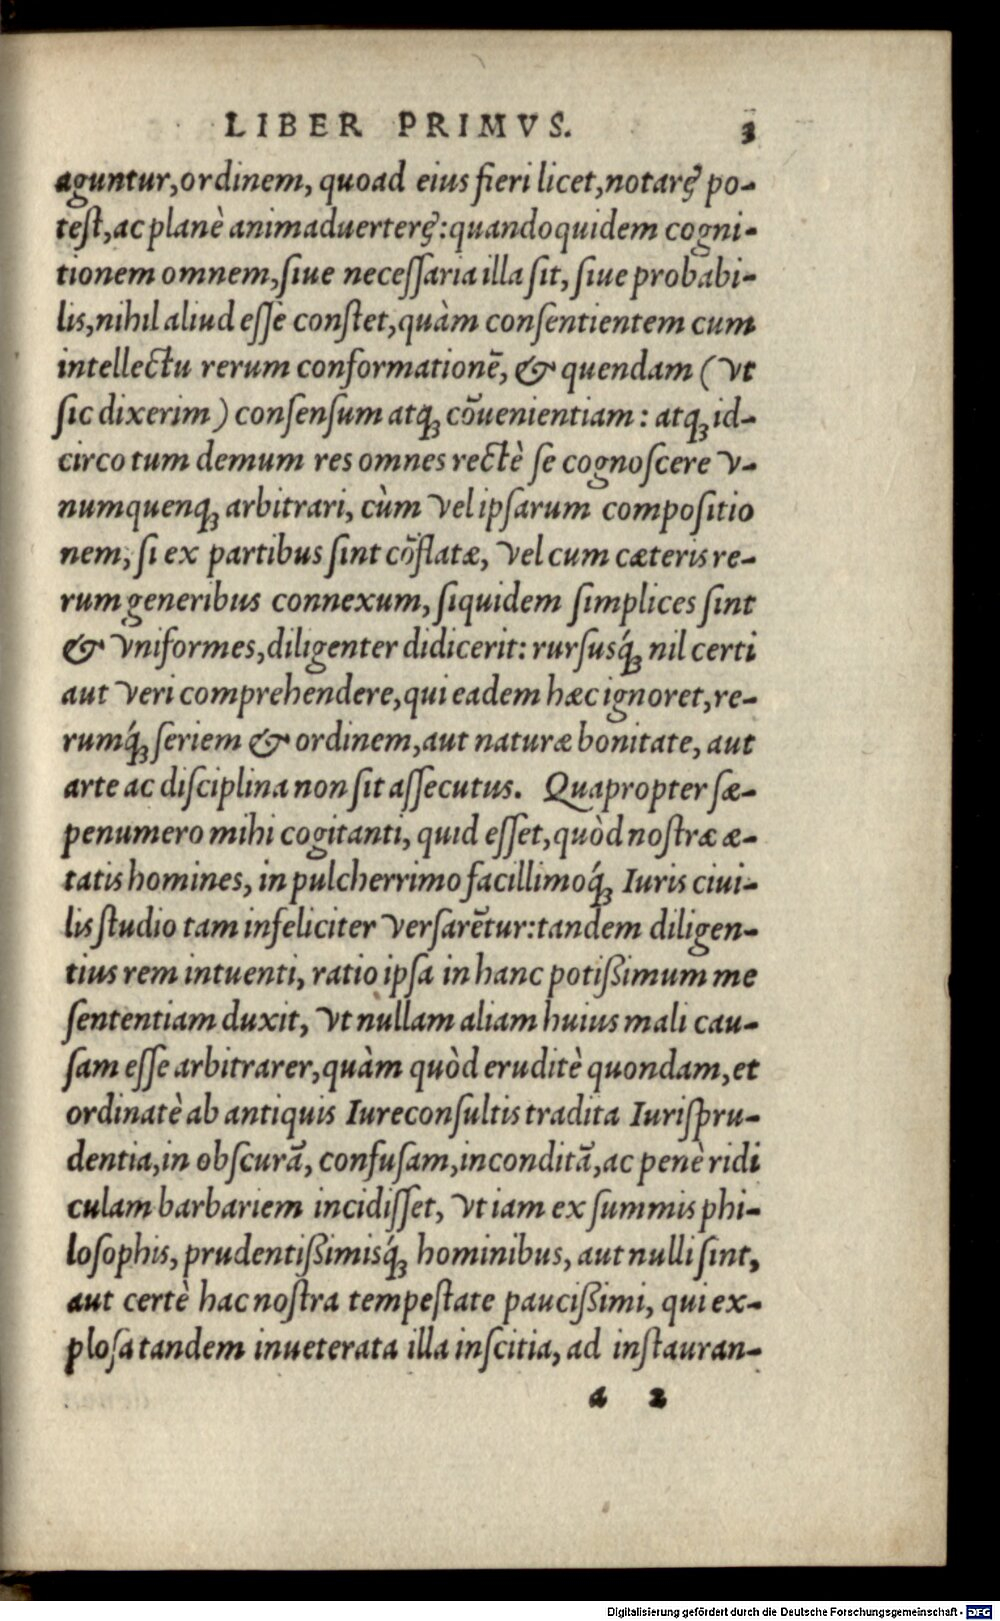 LIBER PRIMVS. 3
aguntur, ordinem, quoad eius fieri licet, notarę po-
test, ac planè animaduerterę: quandoquidem cogni-
tionem omnem, siue necessaria illa sit, siue probabi-
lis, nihil aliud esse constet, quàm consentientem cum
intellectu rerum conformationē, & quendam ( vt
sic dixerim ) consensum atqꝫ cōuenientiam: atqꝫ id-
circo tum demum res omnes rectè se cognoscere v-
numquenqꝫ arbitrari, cùm vel ipsarum compositio
nem, si ex partibus sint cōflatæ, vel cum cæteris re-
rum generibus connexum, siquidem simplices sint
& vniformes, diligenter didicerit: rursusq́ꝫ nil certi
aut veri comprehendere, qui eadem hæc ignoret, re-
rumq́ꝫ seriem & ordinem, aut naturæ bonitate, aut
arte ac disciplina non sit assecutus. Quapropter sæ-
penumero mihi cogitanti, quid esset, quòd nostræ æ-
tatis homines, in pulcherrimo facillimoq́ꝫ Iuris ciui-
lis studio tam infeliciter versarētur: tandem diligen-
tius rem intuenti, ratio ipsa in hanc potißimum me
sententiam duxit, vt nullam aliam huius mali cau-
sam esse arbitrarer, quàm quòd eruditè quondam, et
ordinatè ab antiquis Iureconsultis tradita Iurispru-
dentia, in obscurā, confusam, inconditā, ac penè ridi
culam barbariem incidisset, vt iam ex summis phi-
losophis, prudentißimisq́ꝫ hominibus, aut nulli sint,
aut certè hac nostra tempestate paucißimi, qui ex-
plosa tandem inueterata illa inscitia, ad instauran-
a 2
Digitalisierung gefördert durch die Deutsche Forschungsgemeinschaft - DFG